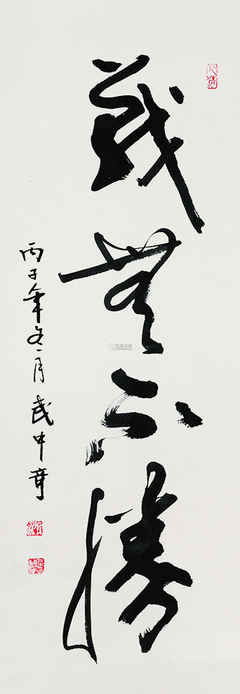 戰無不勝
丙子年冬月武中奇